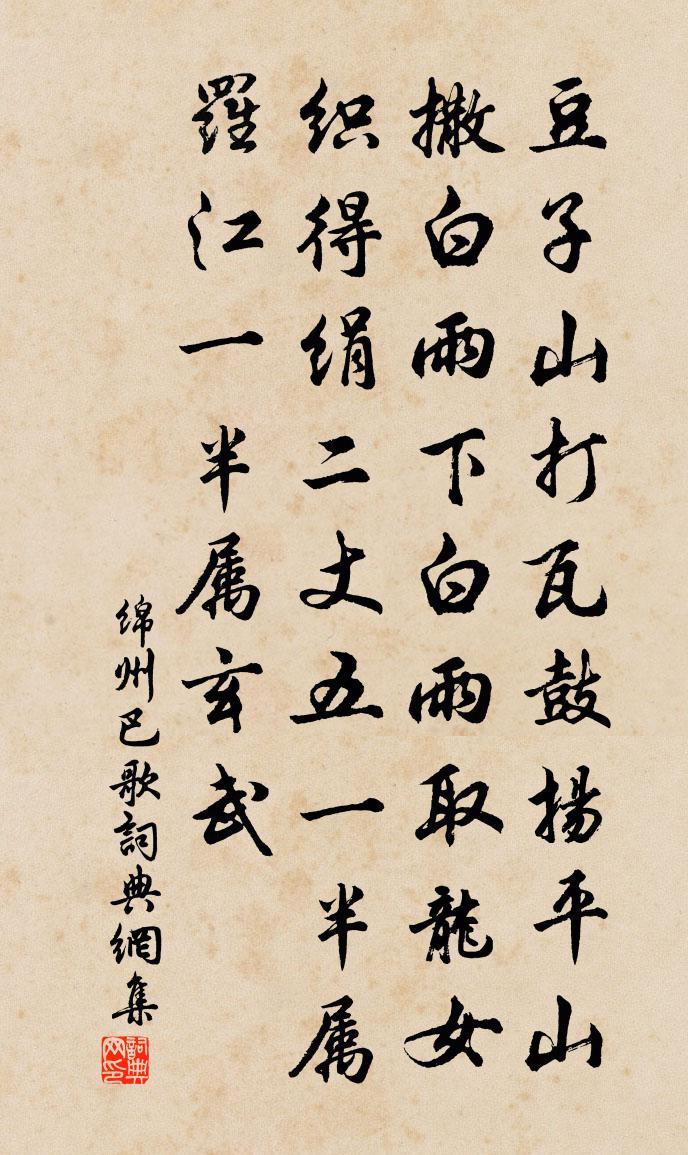 豆子山打瓦鼓揚平山
撒白雨下白雨取龍女
织得绢二丈五一半属
羅江一半属玄武
绵州巴歌詞典網集
詞典网印